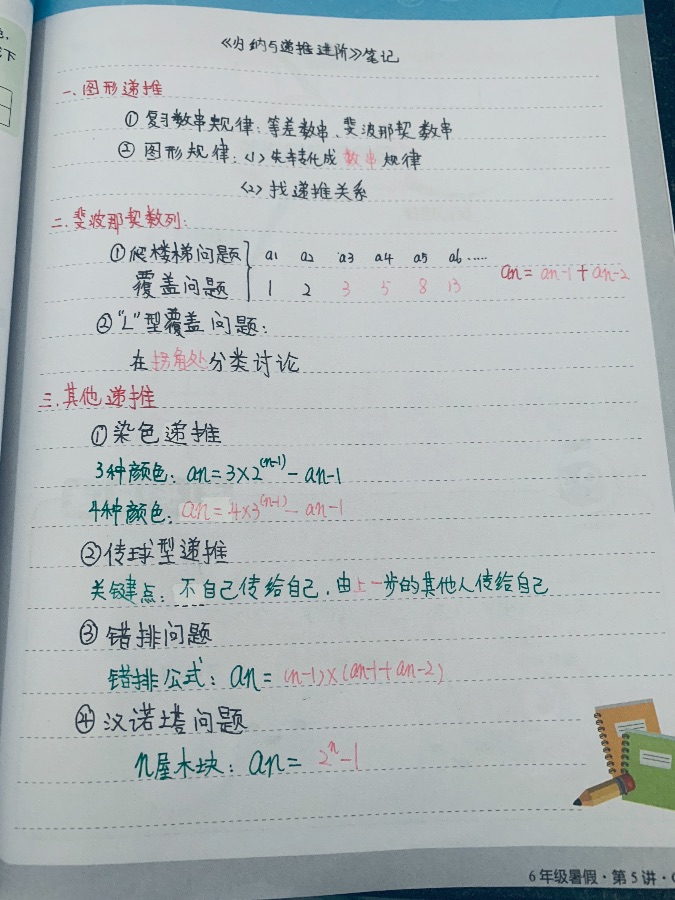 《归纳与递推进阶》笔记
一、图形递推
① 复习数串规律：等差数串、斐波那契数串
② 图形规律：(1) 先转化成数串规律
(2) 找递推关系
二、斐波那契数列：
①爬楼梯问题 a1 a2 a3 a4 a5 a6……
覆盖问题 1 2 3 5 8 13 an=an-1+an-2
②“L”型覆盖问题：
在拐角处分类讨论
三、其他递推
①染色递推
3种颜色：an=3×2^(n-1)-an-1
4种颜色：an=4×3^(n-1)-an-1
②传球型递推
关键点：不自己传给自己，由上一步的其他人传给自己
③错排问题
错排公式：an=(n-1)×(an-1+an-2)
④汉诺塔问题
n层木块：an=2^n-1
6年级暑假·第5讲·